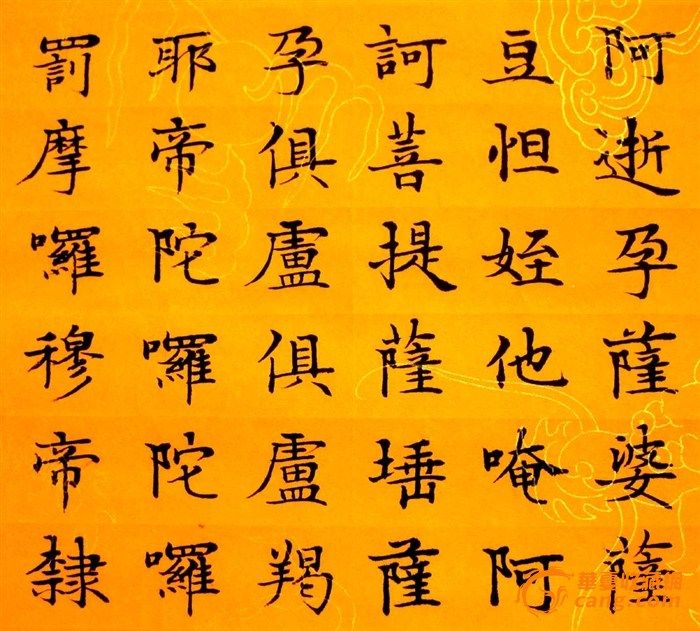 阿逝孕薩婆薩
豆怛姪他唵阿
訶菩提薩埵薩
孕俱盧俱盧羯
耶帝陀囉陀囉
罰摩囉穆帝隸
cang.com